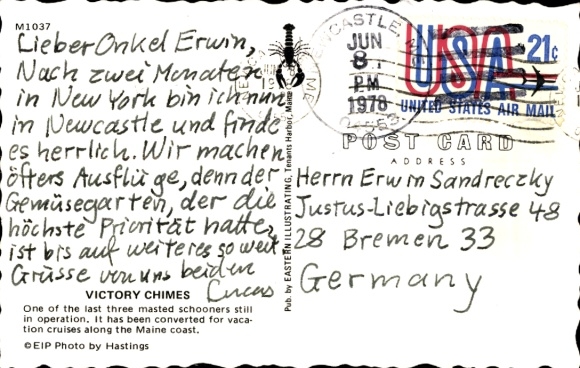 M1037
Lieber Onkel Erwin,
Nach zwei Monaten
in New York bin ich nun
in Newcastle und finde
es herrlich. Wir machen
öfters Ausflüge, denn der
Gemüsegarten, der die
höchste Priorität hatte,
ist bis auf weiteres so weit
Grüsse von uns beiden
Lucas
VICTORY CHIMES
One of the last three masted schooners still
in operation. It has been converted for vaca-
tion cruises along the Maine coast.
©EIP Photo by Hastings
Pub. by EASTERN ILLUSTRATING, Tenants Harbor, Maine
NEWCASTLE, ME
JUN
8
PM
1978
USA 21c
UNITED STATES AIR MAIL
POST CARD
ADDRESS
Herrn Erwin Sandreczky
Justus-Liebigstrasse 48
28 Bremen 33
Germany